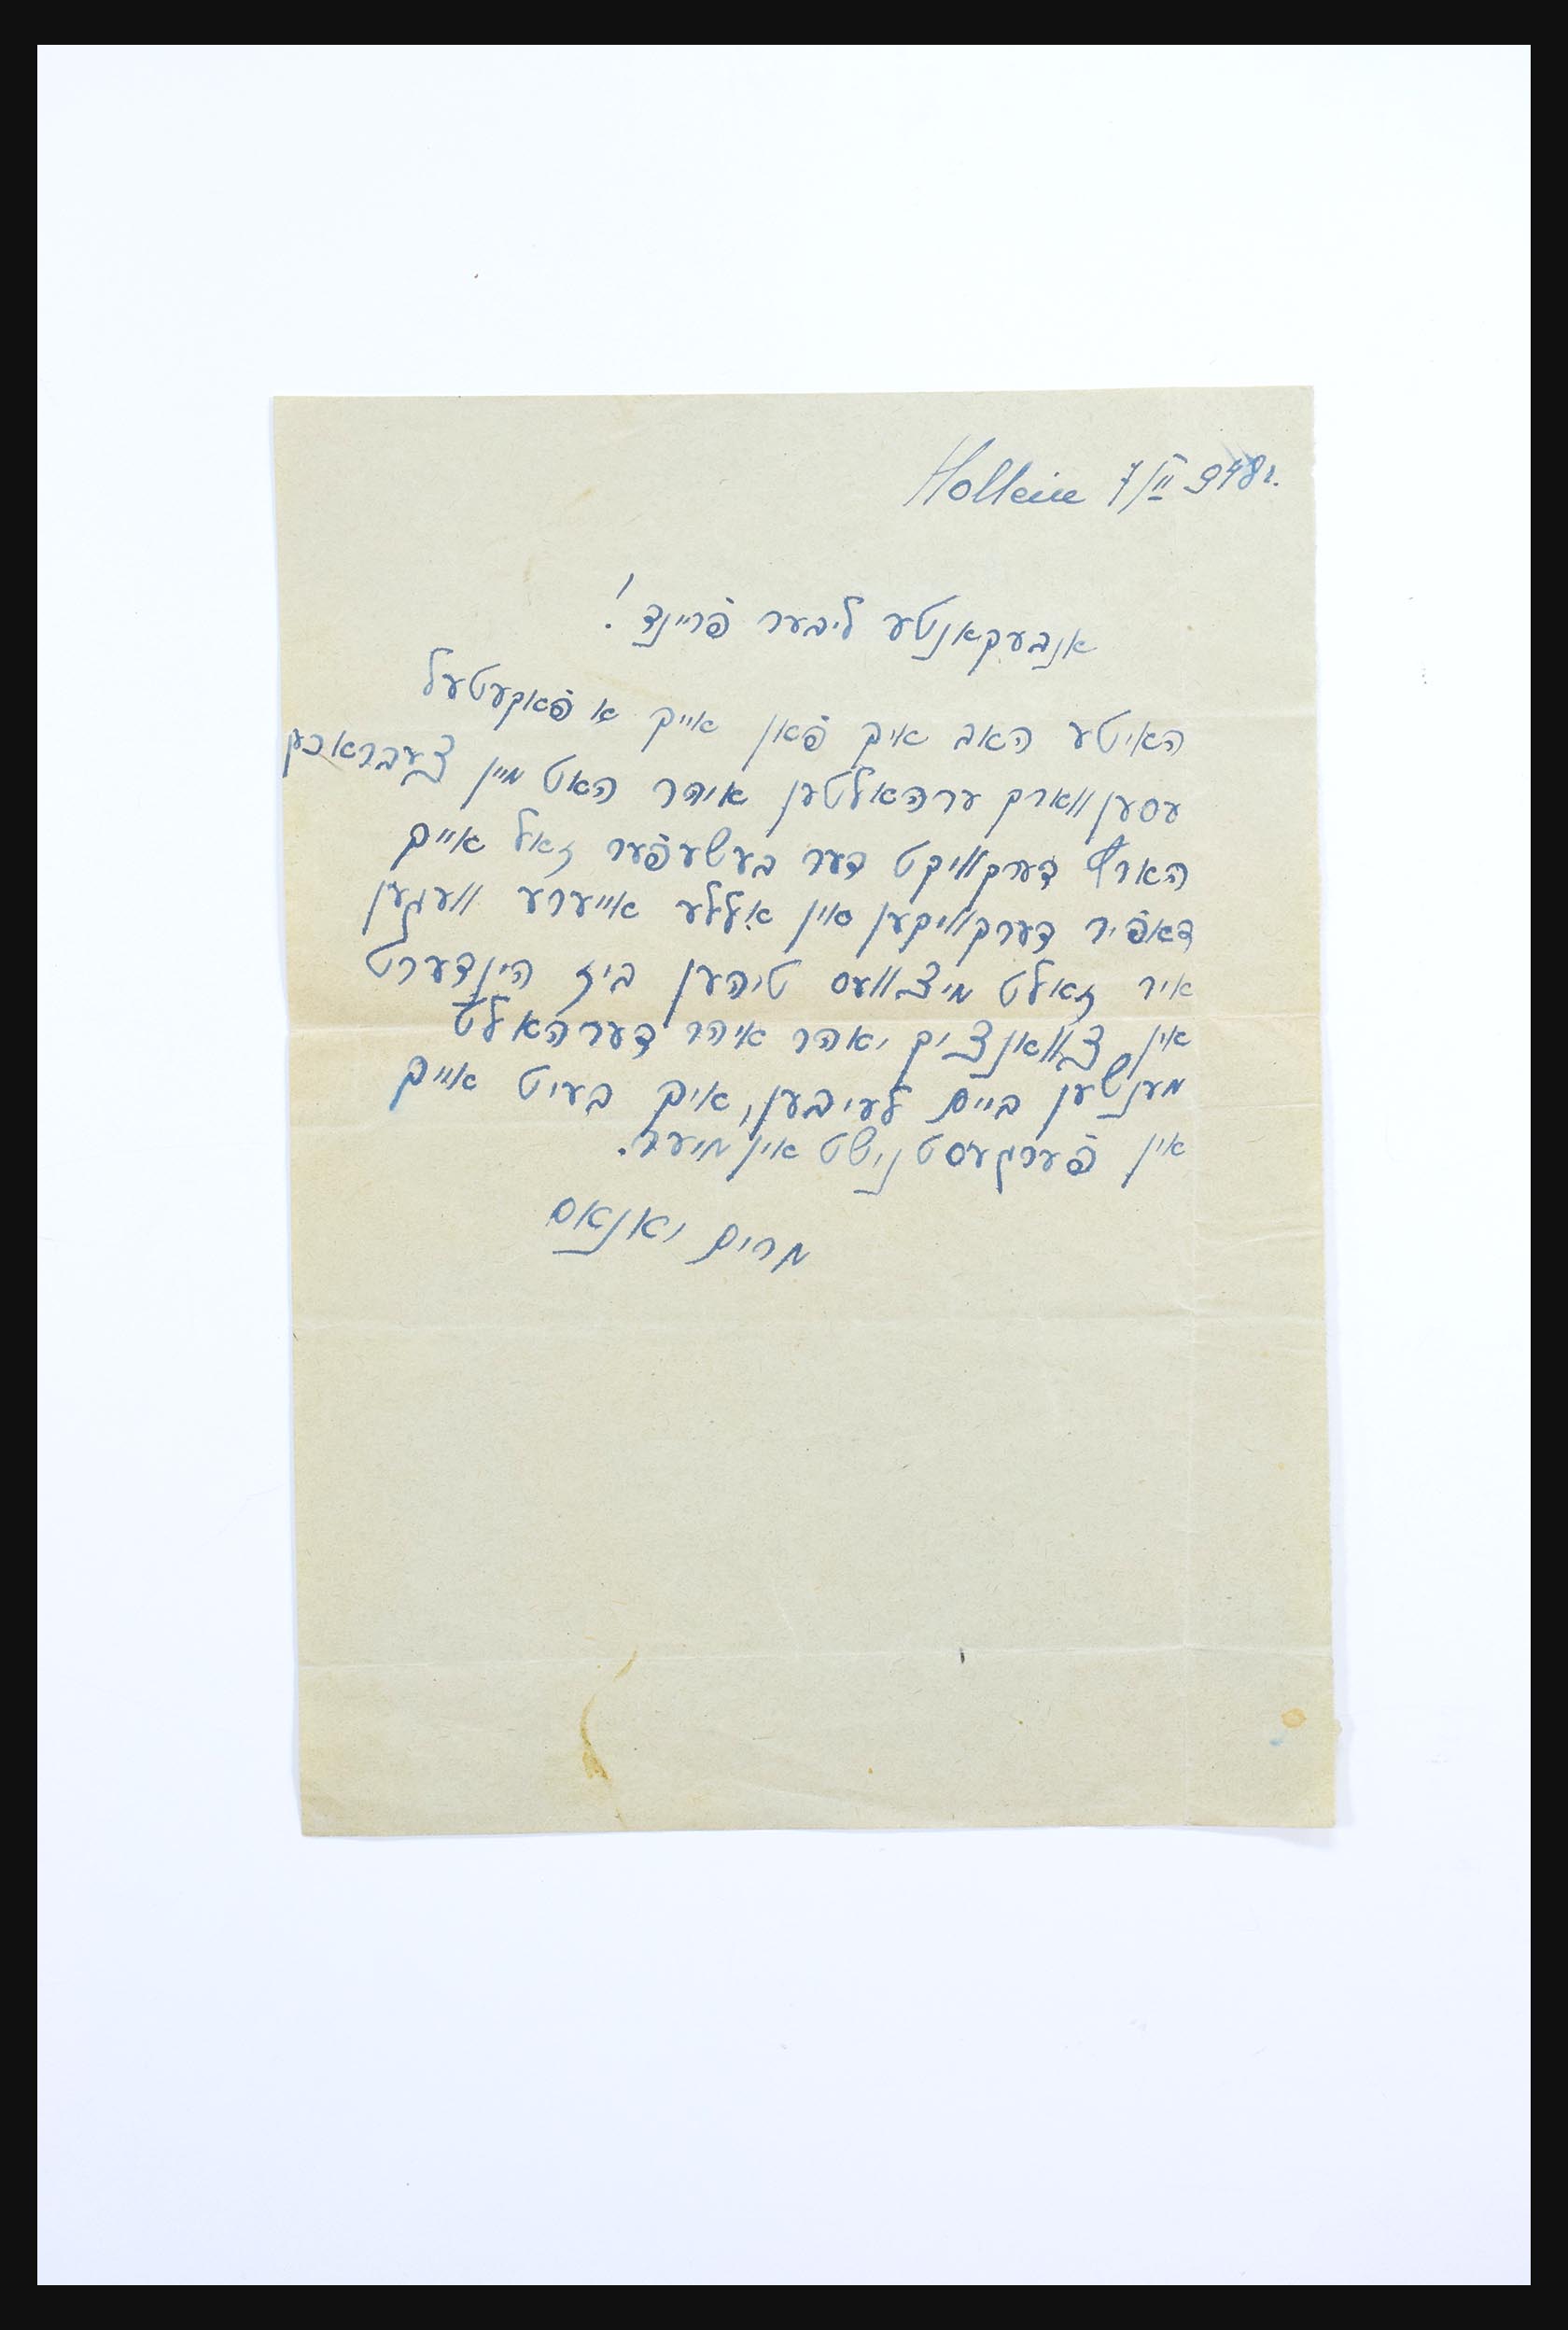 Hallein 7/II 948r.
אנבעקאנטע ליבער פֿריינד!
האיטע האב איך פֿאן אייך א פאקעטעל
עסענווארק ערהאלטען איהר האט מיין צעבראכען
הארץ דערקוויקט דער בעשעפֿער זאל אייך
דאפֿיר דערקוויקען אין אללע אייערע וועגען
איר זאלט מיצוועס טיהען ביז הינדערט
אין צוואנציק יאהר איהר דערהאלט
מענשען ביים לעיבען, איך בעיט אייך
אין פֿערגעסט נישט אין מיער.
מרים יאנאס